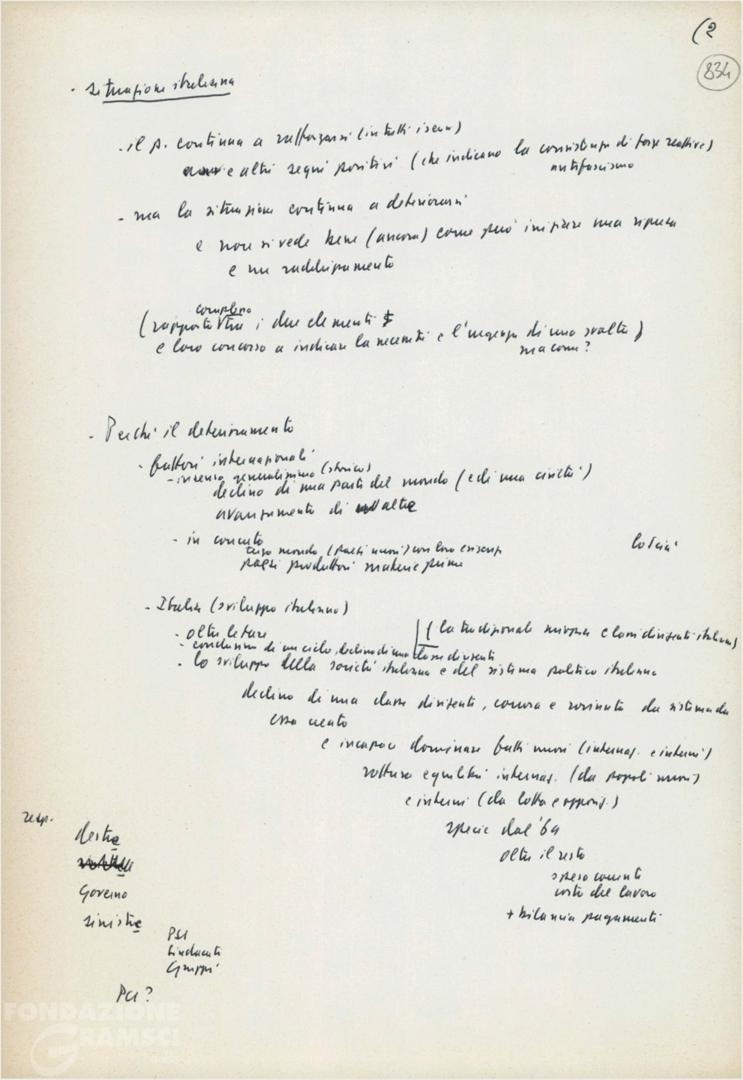 (2
834
· situazione italiana
- il p. continua a rafforzarsi (in tutti i sensi)
e altri segni positivi (che indicano la consistenza di forze reattive)
antifascismo
- ma la situazione continua a deteriorarsi
e non si vede bene (ancora) come può iniziare una ripresa
e un raddrizzamento
complesso
(rapporto tra i due elementi
e loro concorso a indicare la necessità e l'urgenza di una svolta)
ma come?
- Perché il deterioramento
- fattori internazionali
- in senso generalissimo (storico)
declino di una parte del mondo (e di una civiltà)
avanzamento di altre
- in concreto
terzo mondo (paesi nuovi) con loro esigenze
paesi produttori materie prime
- Italia (sviluppo italiano)
- oltre le tare
( la tradizionale miseria e classi dirigenti italiane)
- conclusione di un ciclo, declino di una classe dirigente
- lo sviluppo della società italiana e del sistema politico italiano
declino di una classe dirigente, corrosa e rovinata da sistema da
essa creato
e incapace dominare fatti nuovi (internaz. e interni)
rottura equilibri internaz. (da popoli nuovi)
e interni (da lotta e opposiz.)
specie dal '69
oltre il resto
spese correnti
costo del lavoro
+ bilancia pagamenti
resp.
destre
Governo
sinistre
PSI
Sindacati
Gruppi
PCI?
FONDAZIONE
GRAMSCI